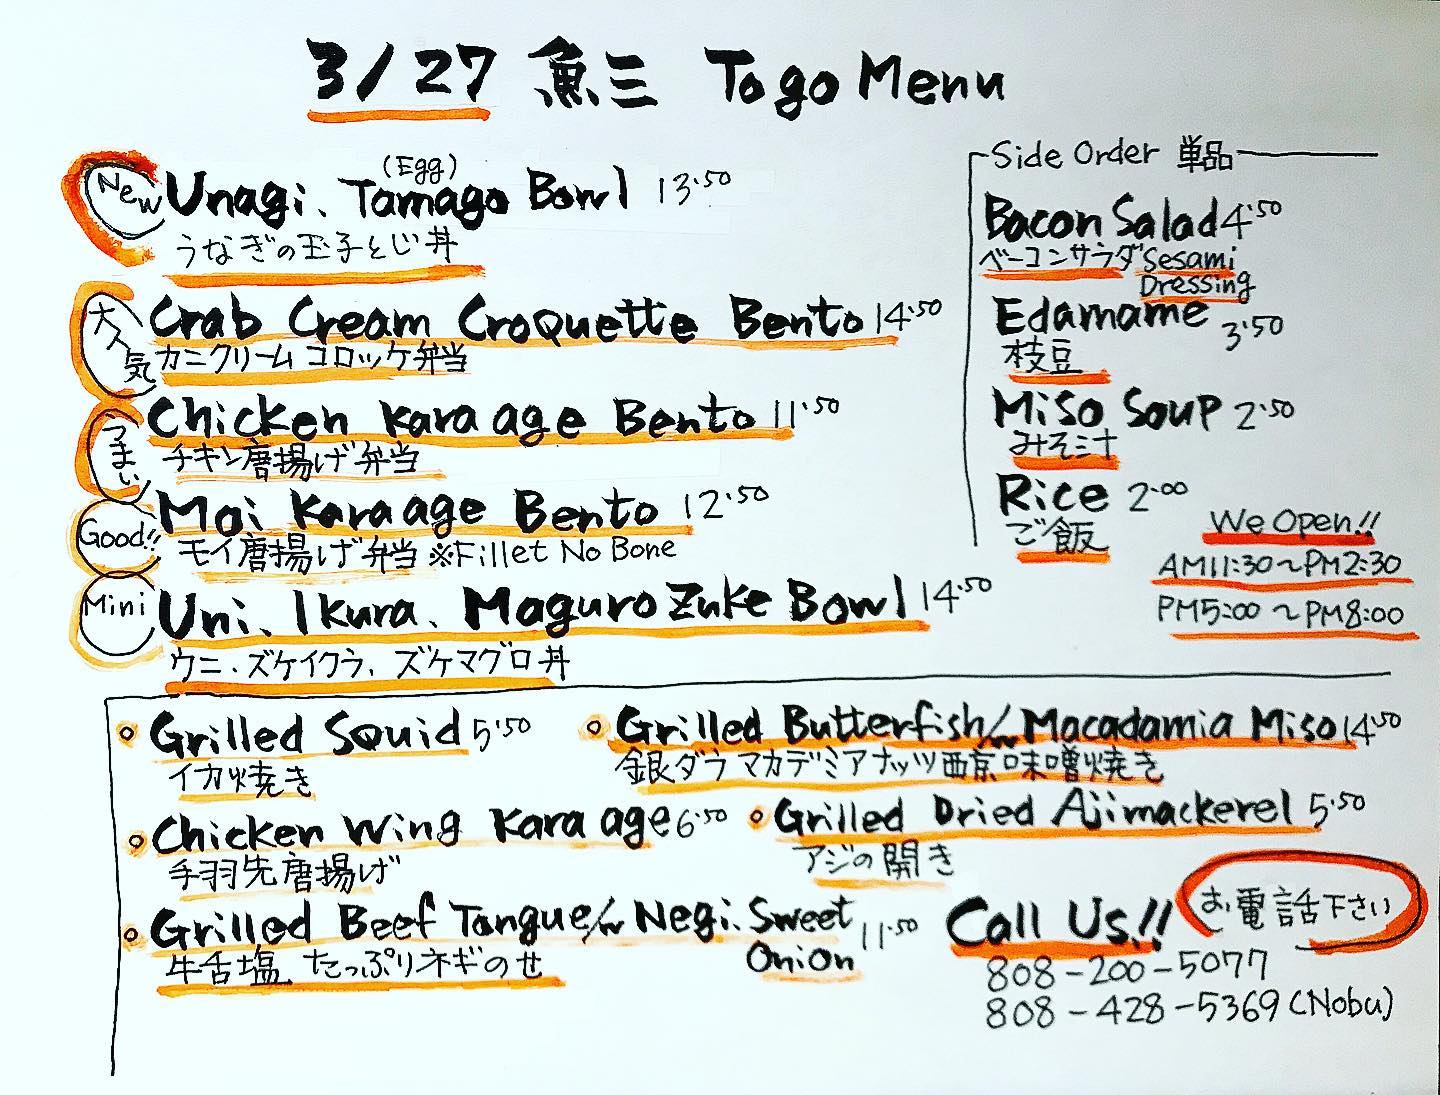 3/27 魚三 To go Menu
New Unagi、Tamago (Egg) Bowl 13.50
うなぎの玉子とじ丼
大人気 Crab Cream Croquette Bento 14.50
カニクリームコロッケ弁当
うまい Chicken Kara age Bento 11.50
チキン唐揚げ弁当
Good!! Moi Kara age Bento 12.50
モイ唐揚げ弁当 ※Fillet No Bone
Mini Uni、Ikura、Maguro Zuke Bowl 14.50
ウニ、ズケイクラ、ズケマグロ丼
Side Order 単品
Bacon Salad 4.50
ベーコンサラダ Sesami
Dressing
Edamame 3.50
枝豆
Miso Soup 2.50
みそ汁
Rice 2.00
ご飯
We Open!!
AM11:30〜PM2:30
PM5:00〜PM8:00
Grilled Squid 5.50
イカ焼き
Grilled Butterfish/w Macadamia Miso 14.50
銀ダラマカデミアナッツ西京味噌焼き
Chicken Wing Kara age 6.50
手羽先唐揚げ
Grilled Dried Aji mackerel 5.50
アジの開き
Grilled Beef Tangue/w Negi. Sweet
Onion 11.50
牛舌塩 たっぷりネギのせ
Call Us!! お電話下さい
808-200-5077
808-428-5369 (Nobu)